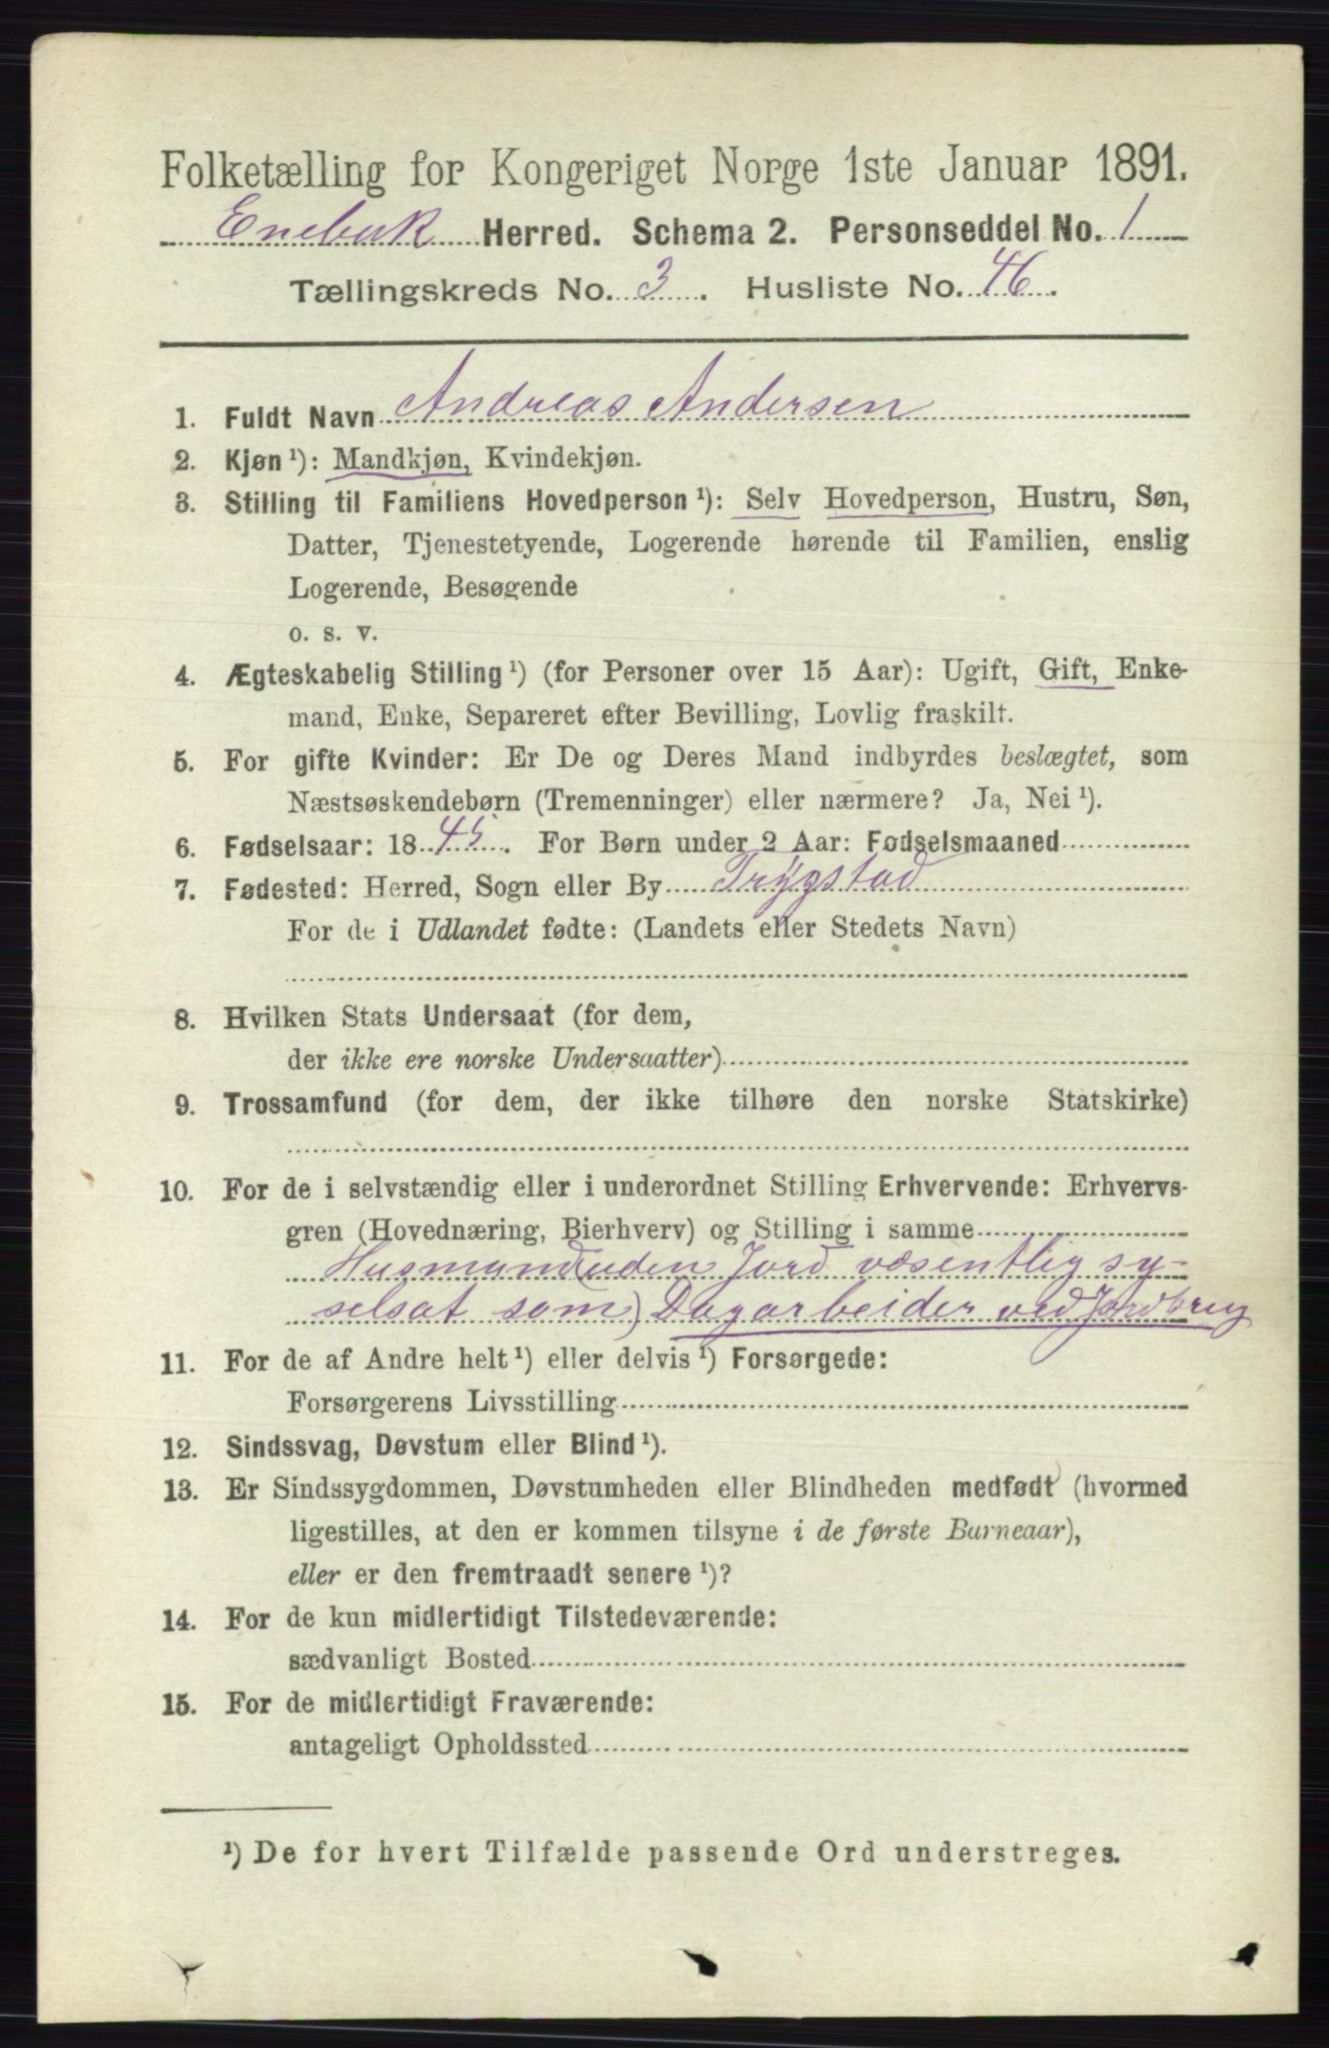 Folketælling for Kongeriget Norge 1ste Januar 1891.
Enebak Herred. Schema 2. Personseddel No. 1
Tællingskreds No. 3. Husliste No. 46.
1. Fuldt Navn Andreas Andersen
2. Kjøn ¹): Mandkjøn, Kvindekjøn.
3. Stilling til Familiens Hovedperson ¹): Selv Hovedperson, Hustru, Søn,
Datter, Tjenestetyende, Logerende hørende til Familien, enslig
Logerende, Besøgende
o. s. v.
4. Ægteskabelig Stilling ¹) (for Personer over 15 Aar): Ugift, Gift, Enke-
mand, Enke, Separeret efter Bevilling, Lovlig fraskilt.
5. For gifte Kvinder: Er De og Deres Mand indbyrdes beslægtet, som
Næstsøskendebørn (Tremenninger) eller nærmere? Ja, Nei ¹).
6. Fødselsaar: 1845. For Børn under 2 Aar: Fødselsmaaned
7. Fødested: Herred, Sogn eller By Trygstad
For de i Udlandet fødte: (Landets eller Stedets Navn)
8. Hvilken Stats Undersaat (for dem,
der ikke ere norske Undersaatter)
9. Trossamfund (for dem, der ikke tilhøre den norske Statskirke)
10. For de i selvstændig eller i underordnet Stilling Erhvervende: Erhvervs-
gren (Hovednæring, Bierhverv) og Stilling i samme
Husmand(uden Jord væsentlig sy-
selsat som) Dagarbeider ved Jordbrug
11. For de af Andre helt ¹) eller delvis ¹) Forsørgede:
Forsørgerens Livsstilling
12. Sindssvag, Døvstum eller Blind ¹).
13. Er Sindssygdommen, Døvstumheden eller Blindheden medfødt (hvormed
ligestilles, at den er kommen tilsyne i de første Barneaar),
eller er den fremtraadt senere ¹)?
14. For de kun midlertidigt Tilstedeværende:
sædvanligt Bosted
15. For de midlertidigt Fraværende:
antageligt Opholdssted
¹) De for hvert Tilfælde passende Ord understreges.